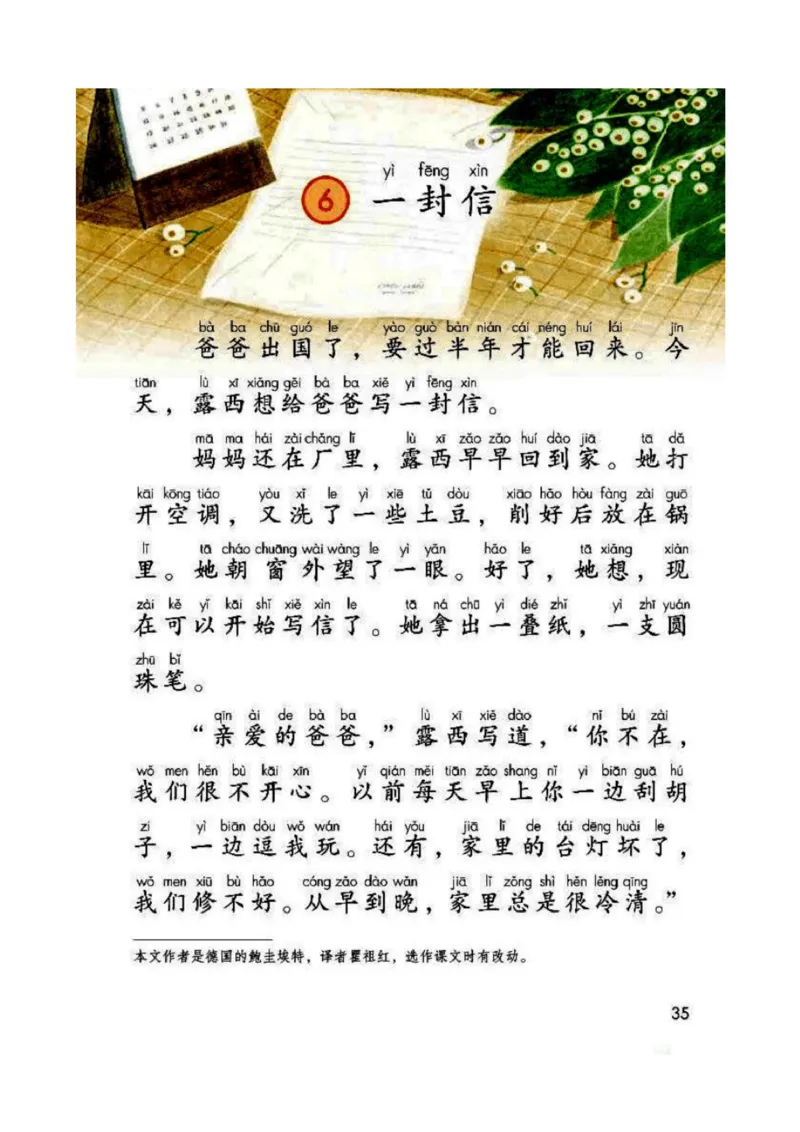 yì fēng xìn
6 一封信
bà ba chū guó le yào guò bàn nián cái néng huí lái jīn
爸爸出国了，要过半年才能回来。今
tiān lù xī xiǎng gěi bà ba xiě yì fēng xìn
天，露西想给爸爸写一封信。
mā ma hái zài chǎng lǐ lù xī zǎo zǎo huí dào jiā tā dǎ
妈妈还在厂里，露西早早回到家。她打
kāi kōng tiáo yòu xǐ le yì xiē tǔ dòu xiāo hǎo hòu fàng zài guō
开空调，又洗了一些土豆，削好后放在锅
lǐ tā cháo chuāng wài wàng le yì yǎn hǎo le tā xiǎng xiàn
里。她朝窗外望了一眼。好了，她想，现
zài kě yǐ kāi shǐ xiě xìn le tā ná chū yì dié zhǐ yì zhī yuán
在可以开始写信了。她拿出一叠纸，一支圆
zhū bǐ
珠笔。
qīn ài de bà ba lù xī xiě dào nǐ bú zài
“亲爱的爸爸，”露西写道，“你不在，
wǒ men hěn bù kāi xīn yǐ qián měi tiān zǎo shang nǐ yì biān guā hú
我们很不开心。以前每天早上你一边刮胡
zi yì biān dòu wǒ wán hái yǒu jiā lǐ de tái dēng huài le
子，一边逗我玩。还有，家里的台灯坏了，
wǒ men xiū bù hǎo cóng zǎo dào wǎn jiā lǐ zǒng shì hěn lěng qīng
我们修不好。从早到晚，家里总是很冷清。”
本文作者是德国的鲍圭埃特，译者瞿祖红，选作课文时有改动。
35